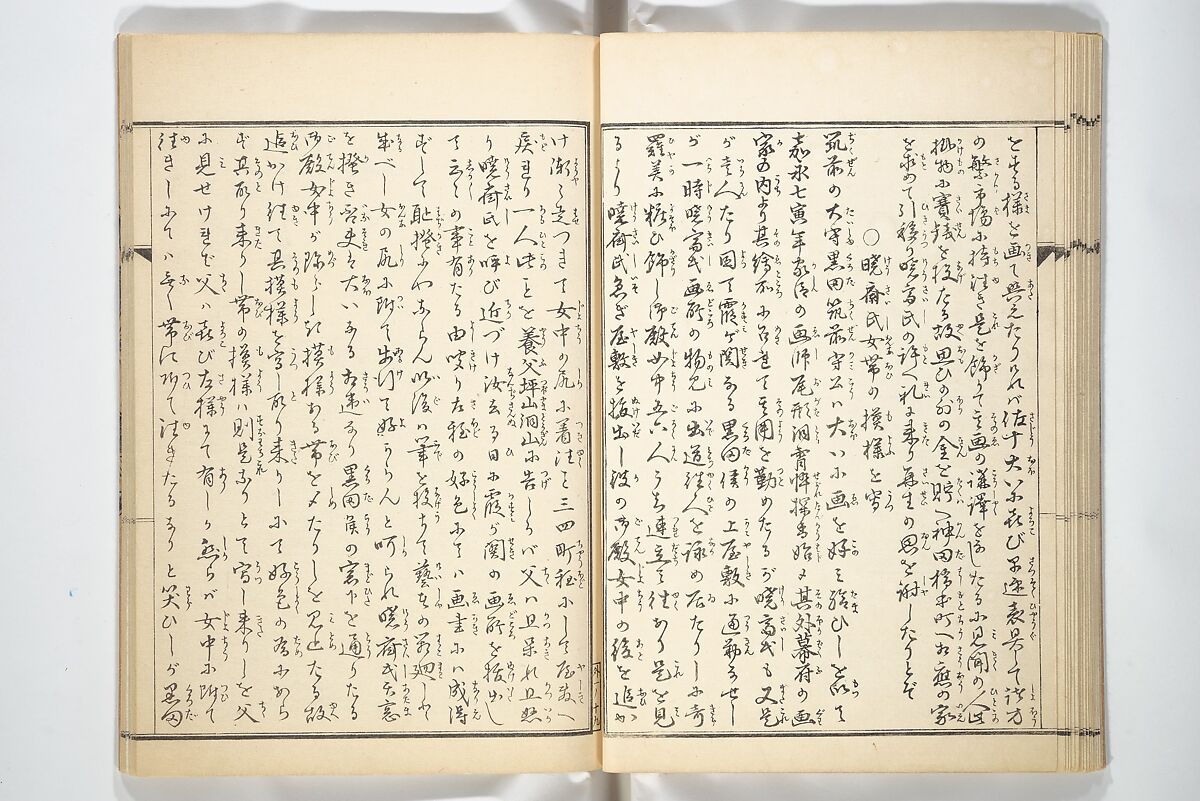 を生る様を画て與えたりければ佐十大いに喜び早速表具して諸方
の繁市場に持往き是を飾りて画の講譯をなしたるに見聞の人は
掛物に賽錢を投たる故思ひの外の金を貯へ神田橋本町へ相應の家
を求めて引移り暁斎氏の許へ礼に来り再生の恩を謝したりとぞ
〇暁斎氏女帯の模様を写
筑前の大守黒田筑前守公ハ大いに画を好ミ給ひしを以て
嘉永七寅年家法の画師尾形洞霄悴探香始メ其外幕府の画
家の内より其繪所に召連て其用を勤めたるが暁斎氏も又是
が其人たり因て霞ヶ関なる黒田侯の上屋敷に通勤なせし
が一時暁斎氏画所の物見に出道往人を詠め居たりしに奇
羅美に粧ひ飾し御殿女中五六人うち連立て往あり是を見
るより暁斎氏急ぎ屋敷を抜出し彼の御殿女中の後を追か
け漸々追つきて女中の尻に着往こと三四町程にして屋敷へ
戻れり一人此ことを養父坪山洞山に告しかバ父ハ且呆れ且怒
り暁斎氏を呼び近づけ汝去る日に霞が関の画所を抜出し
て云々の事有たる由聞り左程の好色にてハ画圭にハ成得
ずして耻掻にやならん以後ハ筆を投すて藝者の前廻しに
成べし女の尻に附て歩行て好からんと叱られ暁斎氏天窓
を掻き否夫は大いなる相違なり黒田侯の窓下を通りたる
御殿女中が珎らしき模様ある帯を〆たりしを見出たる故
追かけ往て其模様を写し取り来りしにて好色の為にあら
ず其取り来りし帯の模様ハ則是なりとて写し来りしを父
に見せければ父ハ喜び左様にて有しか然らバ女中に附て
往きしにてハ無く帯に附て往きたるなりと笑ひしが黒田